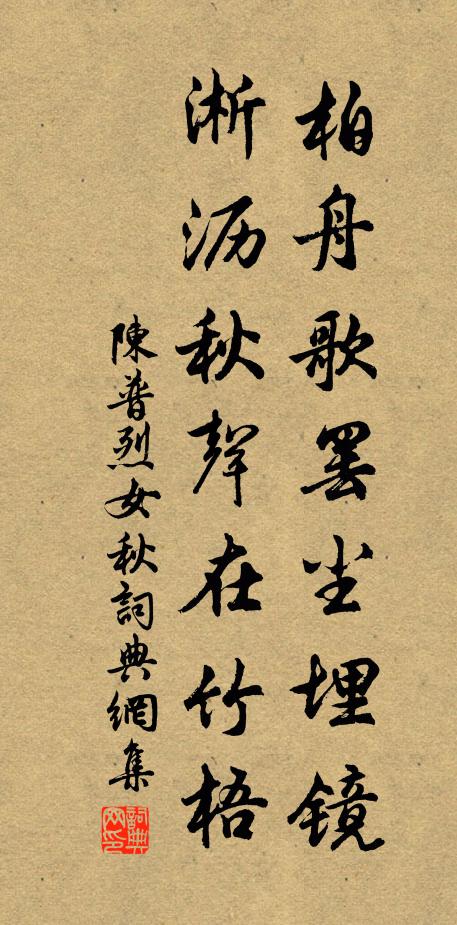 柏舟歌罢尘埋镜
淅沥秋聲在竹梧
陳普烈女秋詞典網集
詞典網印